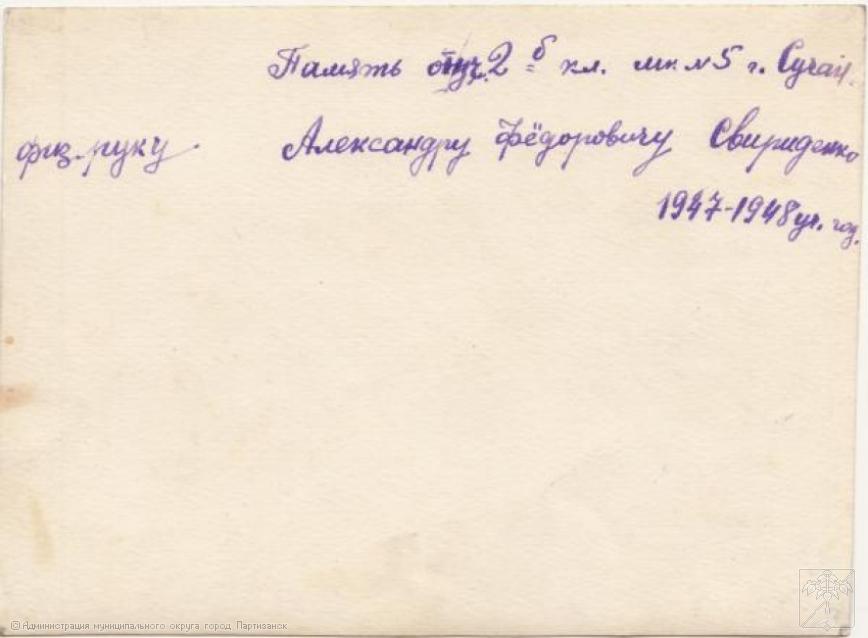 Память от уч. 2 б кл. шк. №5 г. Сучан.
физ. руку. Александру Фёдоровичу Свириденко
1947-1948 уч. год.
© Администрация муниципального округа город Партизанск